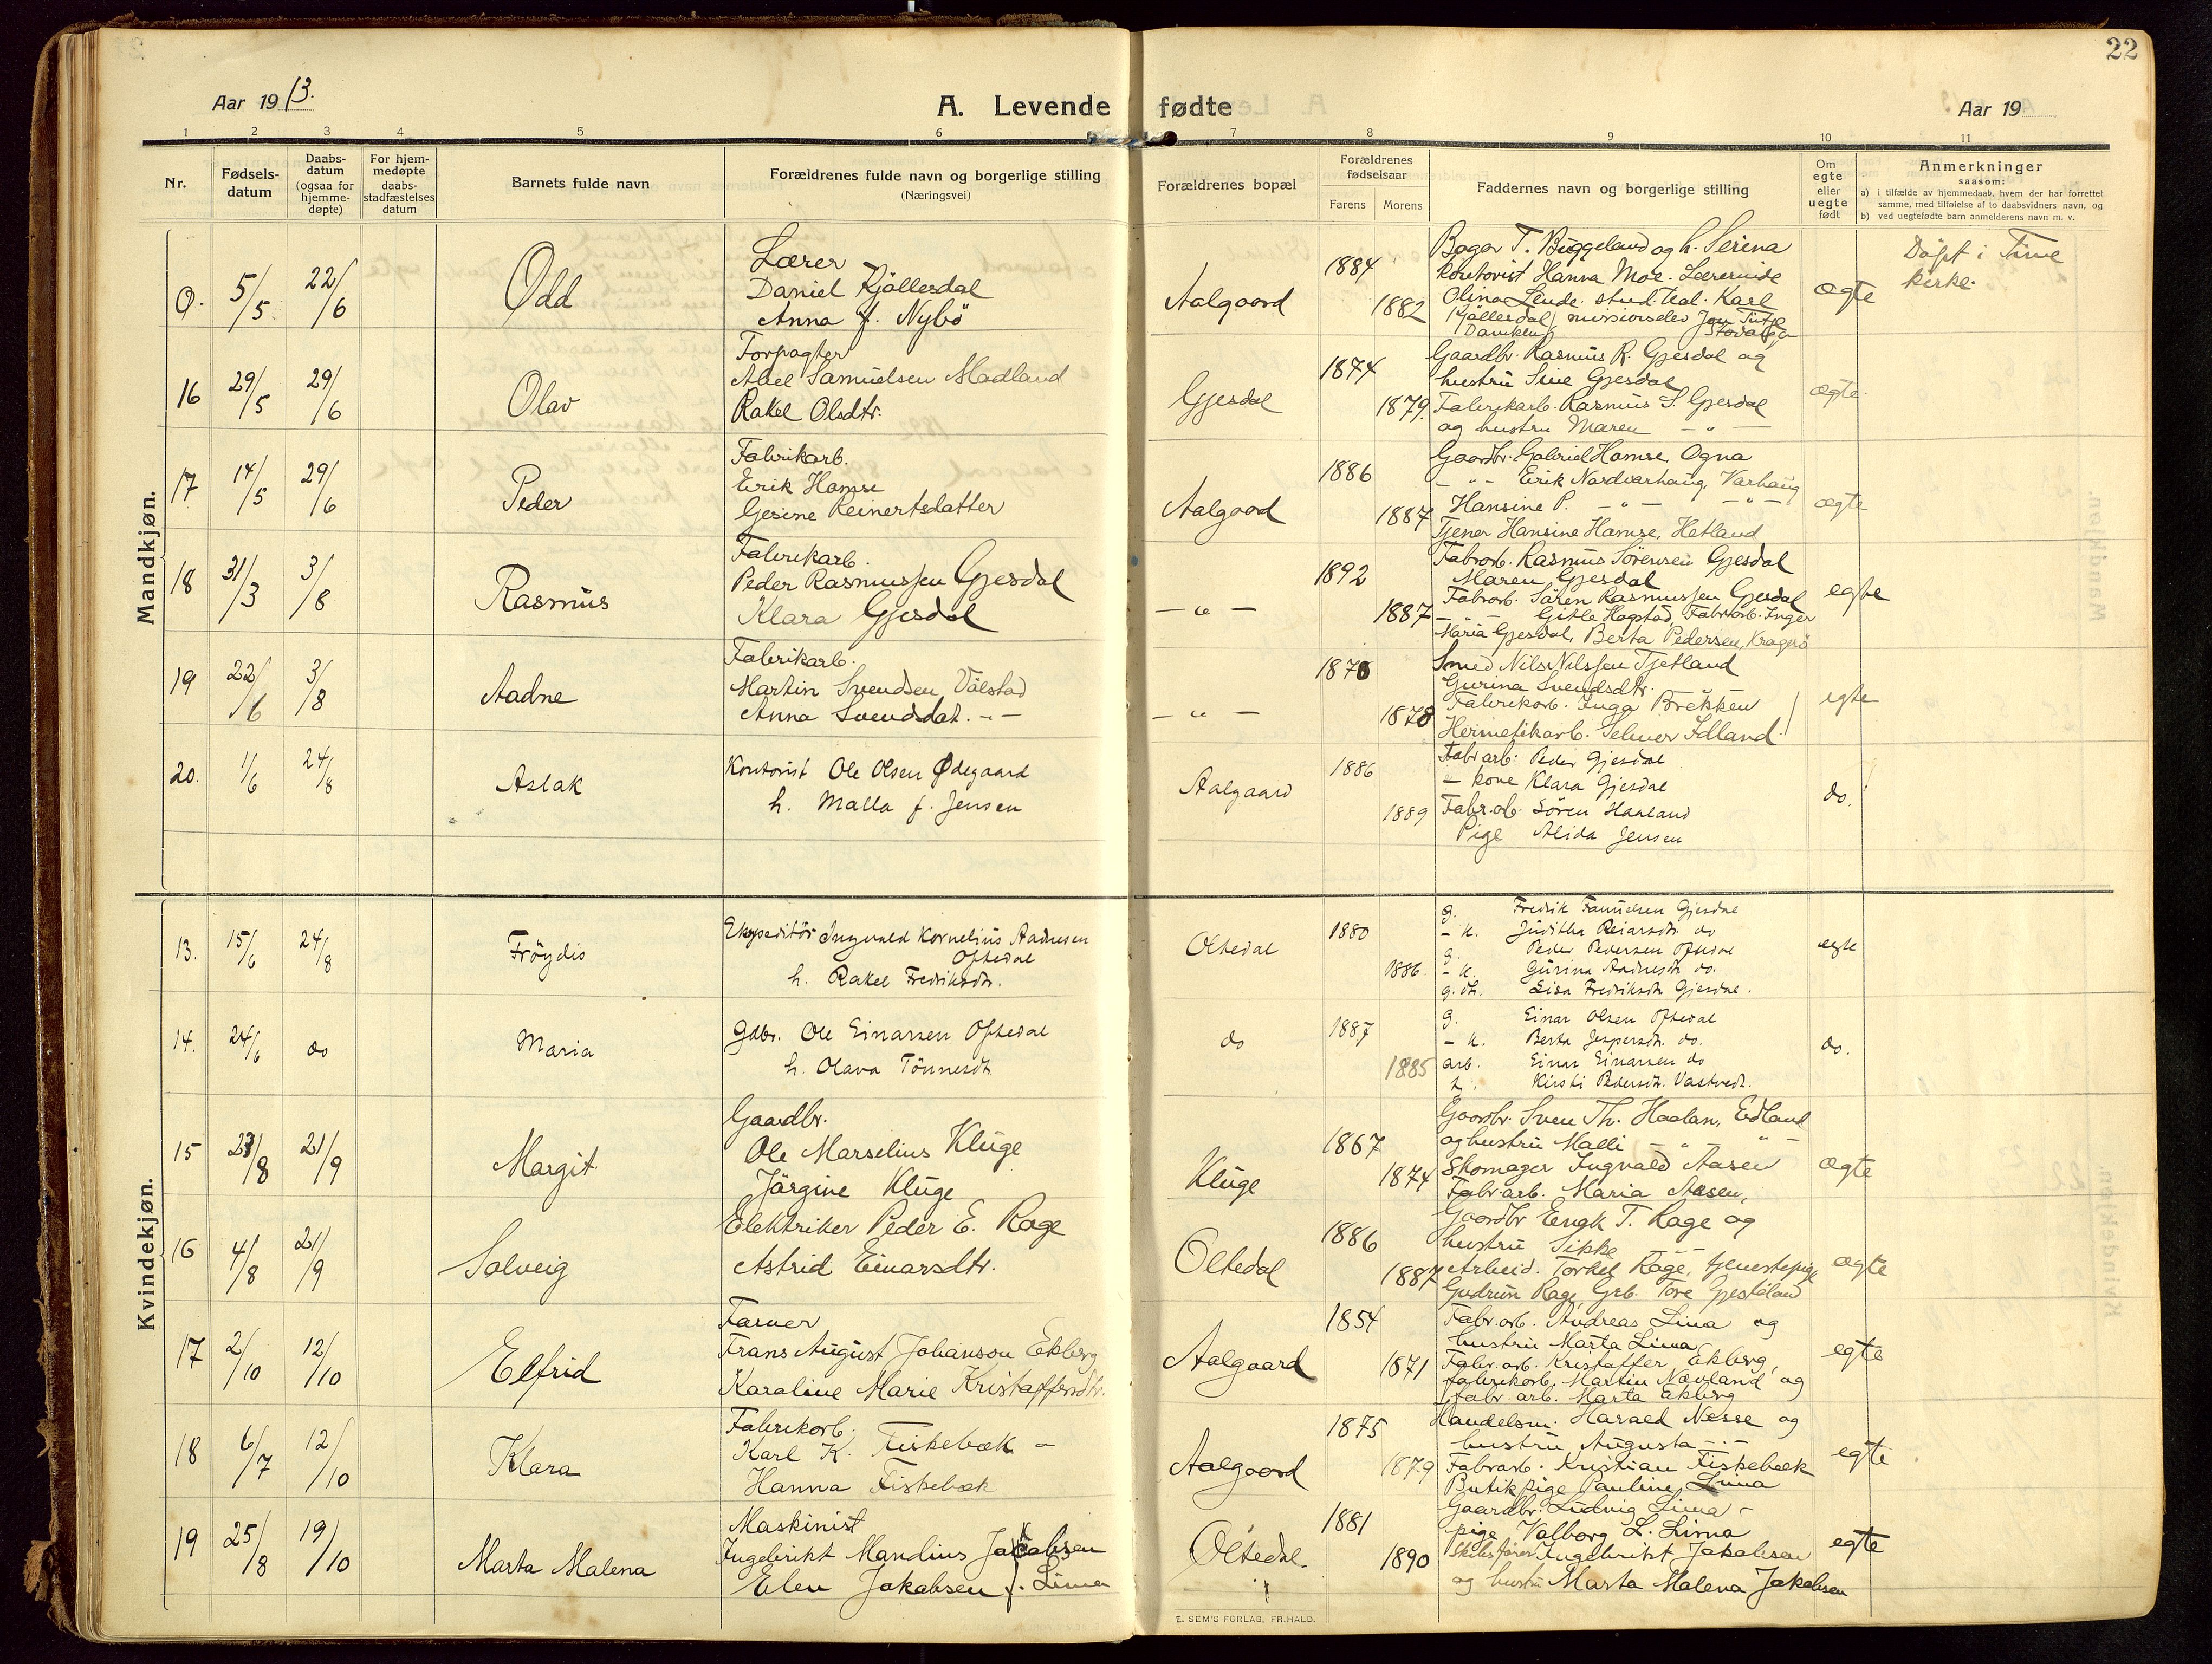 22
Aar 1913.
A. Levende fødte
Aar 19
1 2 3 4 5 6 7 8 9 10 11
Nr.
Fødsels-
datum
Daabs-
datum
(ogsaa for
hjemme-
døpte)
For hjem-
medøpte
daabs-
stadfæstelses
datum
Barnets fulde navn
Forældrenes fulde navn og borgerlige stilling
(Næringsvei)
Forældrenes bopæl
Forældrenes
fødselsaar
Farens Morens
Faddernes navn og borgerlige stilling
Om
egte
eller
uegte
født
Anmerkninger
saasom:
a) i tilfælde av hjemmedaab, hvem der har forrettet
samme, med tilføielse af to daabsvidners navn, og
b) ved uegtefødte barn anmelderens navn m. v.
Mandkjøn.
0. 5/5 22/6 Odd
Lærer
Daniel Kjöllesdal
Anna f. Nybö
Aalgaard 1884 1882
Bager T. Byggeland og h. Serina
kontorist Hanna Moe. Lærerinde
Olina Lende. stud. teol. Karl
Kjöllesdal, missionselev Jon
ægte
Döpt i Time
kirke.
16 29/5 29/6 Olav
Forpagter
Abel Samuelsen Madland
Rakel Olsdtr.
Gjesdal 1874 1879.
Gaardbr. Rasmus R. Gjesdal og
hustru Sine Gjesdal
Fabrikarb. Rasmus S. Gjesdal
og hustru Maren — " —
ægte.
17 14/5 29/6 Peder
Fabrikarb.
Erik Hamre
Gesine Reinertsdatter
Aalgaard 1886 1887
Gaardbr. Gabriel Hamre, Ogna
— " — Erik Nordvarhaug, Varhaug
Hansine P. — " — — " —
Tjener Hansine Hamre, Hetland
ægte
18 31/3 3/8 Rasmus
Fabrikarb.
Peder Rasmussen Gjesdal
Klara Gjesdal
— " — 1892 1887
Fabrarb. Rasmus Sörensen Gjesdal
Maren Gjesdal
Fabrarb. Sören Rasmussen Gjesdal
— " — Gitle Hagstad, Fabrarb. Inger
Maria Gjesdal, Berta Pedersen, Kragerö
egte
19 22/6 3/8 Aadne
Fabrikarb.
Martin Svendsen Vølstad
Anna Svendsdat. — " —
— " — 1878
Smed Nils Nilssen Tjetland
Gurina Svendsdtr.
Fabrikarb. Inga Brekken
Hermetikarb. Selmer Idland.
egte
20. 1/6 24/8 Aslak
Kontorist Ole Olsen Ødegaard
h. Malla f. Jensen
Aalgaard 1886 1889
Fabr arb. Peder Gjesdal
— kone Klara Gjesdal
Fabr.arb. Sören Haaland
Pige Alida Jensen
do.
Kvindekjøn.
13. 15/6 24/8 Fröydis
Ekspeditör Ingvald Kornelius Aadnesen
Oftedal
h. Rakel Fredriksdtr.
Oltedal 1880 1886.
g. Fredrik Samuelsen Gjesdal
— k. Juditha Reiarsdtr do
g. Peder Pedersen Oftedal
— k. Gurina Aadnesdtr do.
g. dt. Lisa Fredriksdtr Gjesdal.
egte
14. 24/6 do Maria
Gdbr. Ole Einarsen Oftedal
h. Olava Tönnesdtr
do 1887 1885
g. Einar Olsen Oftedal
— k. Berta Jespersdtr. do.
arb. Einar Einarsen do
Kirsti Pedersdtr. Vastvedt.
do.
15 23/8 21/9 Margit
Gaardbr.
Ole Marselius Kluge
Jørgine Kluge
Kluge 1867 1874
Gaardbr. Sven Th. Haalan, Edland
og hustru Malli — " — " —
Skomager Ingvald Aasen
Fabr.arb. Maria Aasen,
ægte
16 4/8 21/9 Solveig
Elektriker Peder E. Rage
Astrid Einarsdtr.
Oltedal 1886 1887
Gaardbr Eengk T. Rage og
hustru Sikke — —
Arbeid. Torkel Rage, tjenestepige
Gudrun Rage, Grb. Tore
ægte
17 2/10 12/10 Elfrid
Farver
Frans August Johanson Ekberg
Karaline Marie Kristoffersdtr.
Aalgaard 1854 1871
Fabr.arb. Andreas Lima og
hustru Marta Lima
Fabr.arb. Kristoffer Ekberg,
fabrikarb. Martin Nævland og
fabr.arb. Marta Ekberg
egte
18 6/7 12/10 Klara
Fabrikarb.
Karl K. Fiskebæk —
Hanna Fiskebæk
Aalgaard 1875 1879
Handelsm. Harald Nesse og
hustru Augusta — " —
Fabrarb. Kristian Fiskebæk
Butikpige Pauline Lima
egte
19 25/8 19/10 Marta Malena
Maskinist
Ingebrikt Mandius Jakobsen
Elen Jakobsen f. Lima
Oltedal. 1881 1890
Gaardbr. Ludvig Lima —
pige Valborg L. Lima
Skibsfører Ingebrikt Jakobsen
og hustru Marta Malena Jakobsen
egte
E. SEM'S FORLAG, FR.HALD.